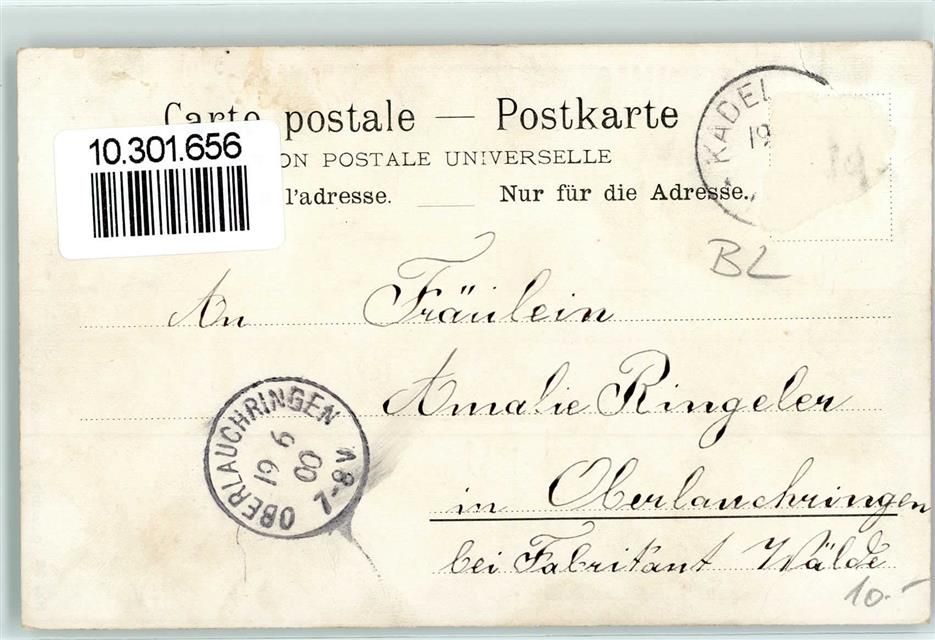 Carte postale — Postkarte
10.301.656
ON POSTALE UNIVERSELLE
l'adresse. Nur für die Adresse.
KADEL
19
19
BL
An Fräulein
Amalie Ringeler
in Oberlauchringen
bei Fabrikant Wälde
OBERLAUCHRINGEN
19 9 00
7-8 V
10.-